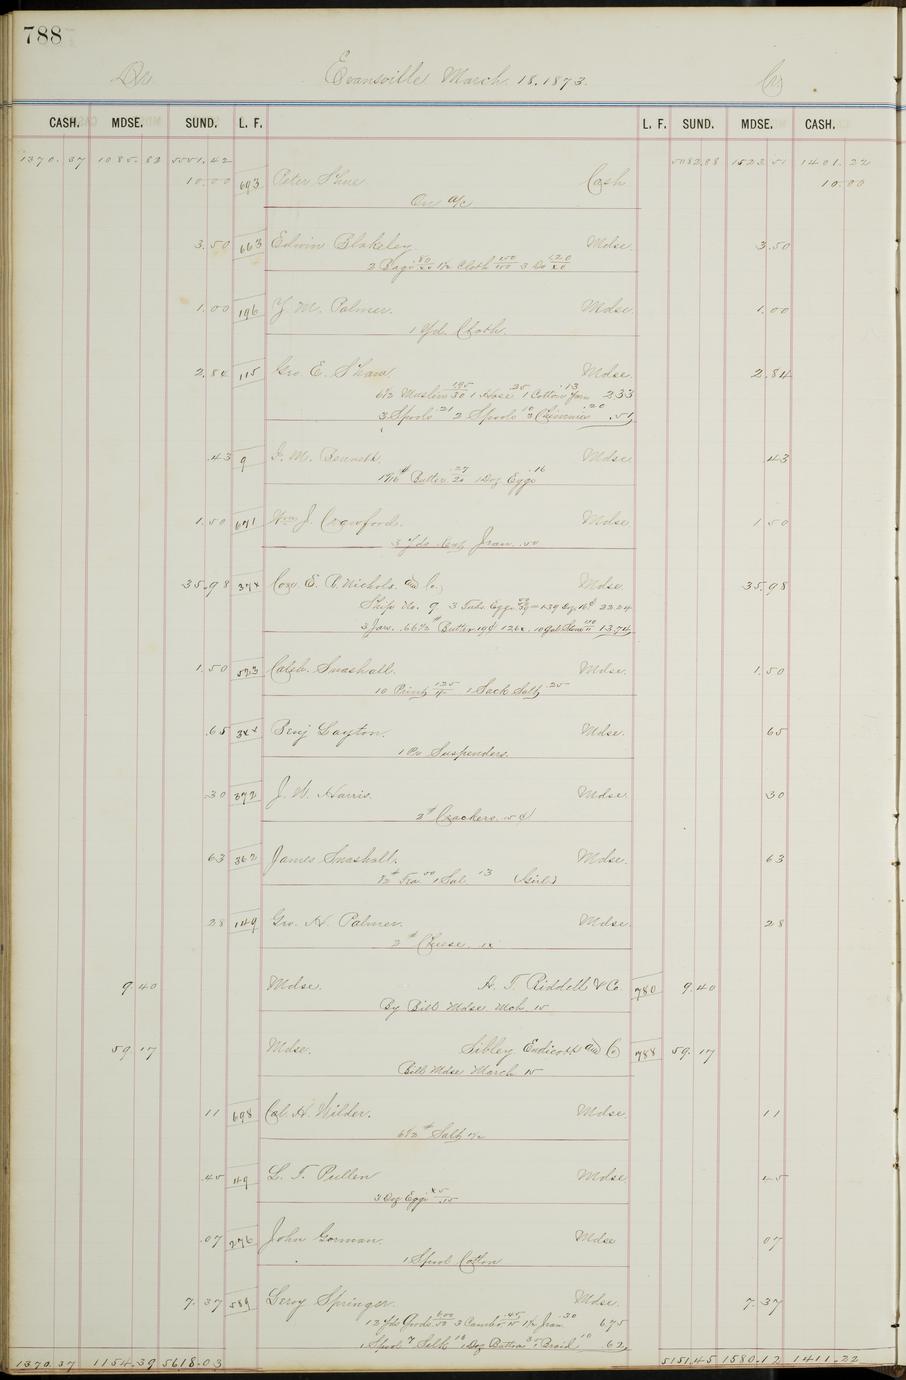 788
Dr Evansville March. 18. 1873. Cr
CASH. MDSE. SUND. L. F. L. F. SUND. MDSE. CASH.
1370.37 1085.82 1401.22
10.00 693 Peter Shue Cash 10.00
On a/c
3.50 663 Edwin Blakeley Mdse 3.50
2 Bags Cloth
1.00 196 Y. M. Palmer. Mdse. 1.00
1 Yd. Cloth.
2.84 115 Geo. E. Shaw. Mdse. 2.84
6 1/2 Muslin 1 Hose 25 1 Cotton Yarn .13 2.33
3 Spools .21 2 Spools 10 .20 .51
.43 9 M. Bennett. Mdse 43
Butter 1 Doz Eggs .16
1.50 671 Wm J. Crawford. Mdse 1.50
3 Yds. Jean. .50
35.98 374 E. P. Nichols. and Co. Mdse. 35.98
Ship No. 9 3 Tubs. Eggs 139 Doz 16¢ 22.24
3 Jars. 66 1/2# Butter 19¢ 13.74
1.50 523 Caleb. Snashall. Mdse. 1.50
10 Prints 1 Sack Salt .25
.65 Benj Layton. Mdse. 65
1 Pr Suspenders.
30 372 J. W. Harris. Mdse. 30
2# Crackers. 15¢
63 362 James Snashall. Mdse. 63
1/2# Tea 50 1 Sal. 13 (Girl)
28 149 Geo. H. Palmer. Mdse. 28
2# Cheese.
9.40 Mdse. H. T. Riddell & Co. 780 9.40
By Bill Mdse Mch. 15
59.17 Mdse. Sibley Endicott and Co 788 59.17
Bill Mdse March 15
11 698 Col H. Wilder. Mdse. 11
6 1/2# Salt
.45 L. T. Pullen Mdse 45
3 Doz Eggs .15
.07 276 John Gorman. Mdse 07
1 Spool Cotton
7.37 589 Leroy Springer. Mdse. 7.37
12 Yds Goods 3 Jean .30 6.75
1 Spool 7 Silk 10 1 Doz Buttons 35 1 Braid 10 62
1370.37 1154.39 5618.03 5151.45 1580.12 1411.22